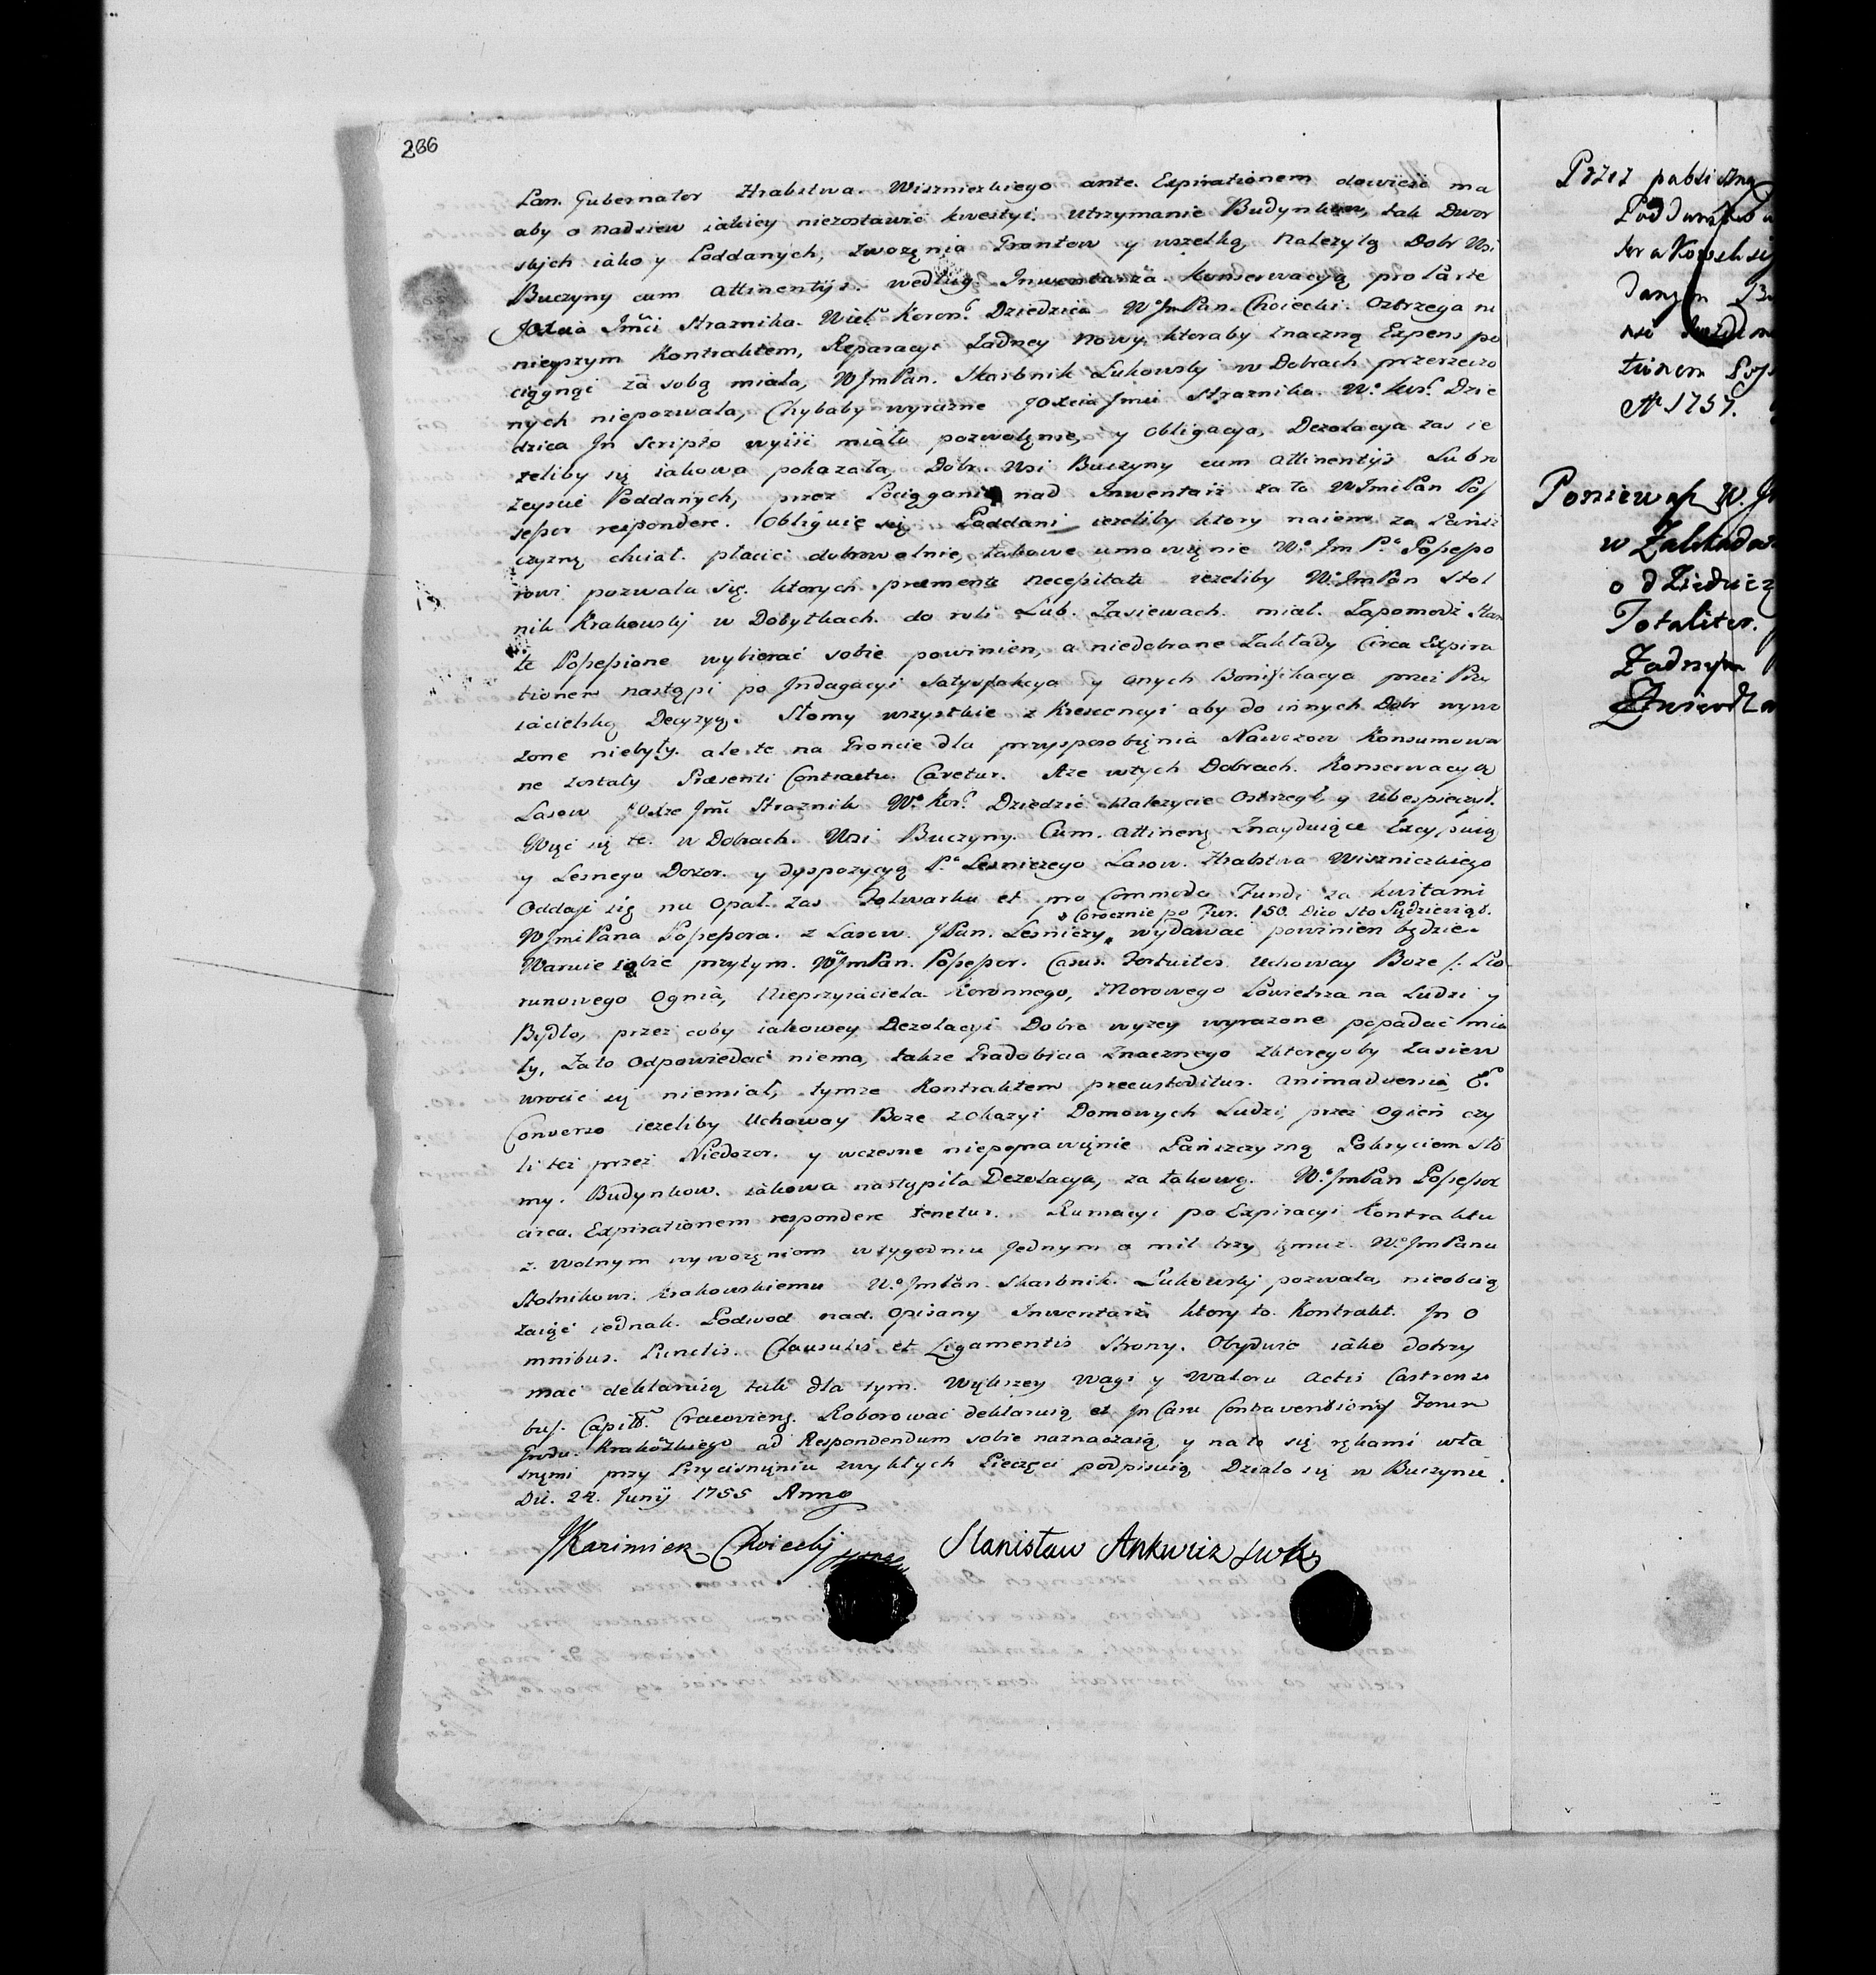 266
Pan. Gubernator Hrabstwa. Wisznickiego ante. Expirationem dowieść ma
aby o nadsiew iakiey niezostawić kwestyi. Utrzymanie Budynkow, tak Dwor
skich iako y Poddanych, Tworzęnia Grontow y wszelką należytą Dobr Wsi
Buczyny cum attinentijs. według Inwentarza. konserwacyą pro Parte
JOxcia Jmći Straznika. Wielo Koronno Dziedzica Wo JmPan. Choiecki. Ostrzega ni
nieyszym Kontraktem, Reparacyi Żadney nowy, ktoraby znaczną Expens po
ciągngć za sobą miała, WJmPan. Skarbnik Łukowskj w Dobrach przerzeczo
nych niepozwala, Chybaby wyrazne JOxcia Jmći Straznika. Wo Kor. Dzie
dzica Jn scripto wyiść miało pozwolęnie, y obligacya, Dezolacya zas ie
zeliby się iakowa pokazała, Dobr. Wsi Buczyny cum attinentijs Lub ro
zeyscie Poddanych, przez Pociągganie nad Inwentarz za to WJmiPan Pos
sesor respondere. Obliguie się Poddani iezeliby ktory naiem za Pańsz
czyznę chciał. płacić dobrowolnie, takowe umowięnie Wo Jm Pa Possesso
rowi pozwala się. ktorych premente necessitate iezeliby Wo JmPan Stol
nik Krakowskj w Dobytkach. do roli Lub. Zasiewach. miał. Zapomodz
te Possessione wybierać sobie powinien, a niedobrane Zakłady Circa Expira
tionem nastąpi po Jndagacyi satysfakcya y onych Bonifikacya przez Prz
iacielską Decyzyą. Słomy wszystkie z Krescencyi aby do innych Dobr wywo
żone niebyły. ale te na Groncie dla przysposobięnia Nawozow Konsumowa
ne zostały Præsenti Contractu. Cavetur. Aze wtych Dobrach. Konserwacyą
Lasow JOxże Jmć Straznik Wo Koro Dziedzic należycie Ostrzegł, y ubespieczył.
Więc się te. w Dobrach. Wsi Buczyny. Cum. attinen. Znayduiące Excypuią
y Lesnego Dozor. y dyspozycyą Pa Lesniczego Lasow. Hrabstwa Wisznickiego
Oddaje się na Opał. zas Folwarku et pro Commodo Fundi za kwitami
Corocznie po Fur. 150. Dico Sto Pędziesiąt.
WJmiPana Possessora. z Lasow. JPan. Lesniczy wydawac powinien będzie.
Waruie sobie przytym. WoJmPan. Possessor. Casus Fortuitos Uchoway Boze /. Pio
runowego Ognia, Nieprzyiaciela Koronnego, Morowego Powietrza na Ludzi y
Bydło, przez coby iakowey Dezolacyi Dobra wyzey wyrazone popadać mia
ły, Zato Odpowiedać niema, takze Gradobicia znacznego zktoregoby zasiew
wrocić się niemiał, tymze Kontraktem præcustoditur. animadversia E.
Converso iezeliby Uchoway Boze z okazyi Domowych Ludzi, przez ogień czy
li też przez Niedozor. y wczesne niepoprawięnie Pańszczyzną Pokryciem Sło
my. Budynkow. iakowa nastąpiła Dezolacya, za takową. Wo JmPan Possessor
circa. Expirationem respondere tenetur. Rumacyi po Expiracyi Kontraktu
z. wolnym wywozęniom wtygodniu Jednym o mil trzy tęmuz. Wo JmPanu
Stolnikowi. Krakowskiemu Wo JmPan. Skarbnik. Łukowskj pozwala, nieobcią
zaiąć iednak. Podwod nad. Opisany Inwentarz ktory to. Kontrakt. Jn O
mnibus. Punctis. Clausulis et Ligamentis Strony. Obydwie iako dotrzy
mać deklaruią tak dla tym. Większey Wagi y waloru Actis Castrensi
bus. Capit. Cracoviens. Roborować deklaruią et Jn Casu Contraventionis Forum
Grodu. Krakowskiego ad Respondendum sobie naznaczaią y na to się rękami wła
snęmi przy Przycisnięniu zwykłych Pieczęci podpisuią Działo się w Buczynie
Die. 24. Junij 1755 Anno
Kazimierz Choieckj
Stanisław Ankwicz SWK
Przez
Poddan
krakowski
danym
tionem
Ao 1757.
Poniewasz W. J
w Zakłada
o dziedzicz
Totaliter.
Żadnym
Zwierdza